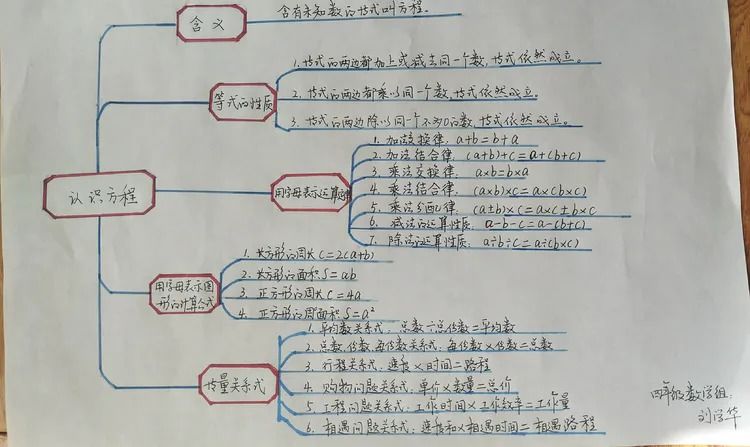 含义
含有未知数的等式叫方程。
等式的性质
1. 等式的两边都加上或减去同一个数,等式依然成立。
2. 等式的两边都乘以同一个数,等式依然成立。
3. 等式的两边除以同一个不为0的数,等式依然成立。
认识方程
用字母表示运算定律
1. 加法交换律: a+b=b+a
2. 加法结合律: (a+b)+c=a+(b+c)
3. 乘法交换律: a×b=b×a
4. 乘法结合律: (a×b)×c=a×(b×c)
5. 乘法分配律: (a±b)×c=a×c±b×c
6. 减法的运算性质: a-b-c=a-(b+c)
7. 除法的运算性质: a÷b÷c=a÷(b×c)
用字母表示图
形的计算公式
1. 长方形的周长C=2(a+b)
2. 长方形的面积S=ab
3. 正方形的周长C=4a
4. 正方形的周面积S=a²
等量关系式
1. 平均数关系式: 总数÷总份数=平均数
2. 总数,份数,每份数关系式: 每份数×份数=总数
3. 行程关系式: 速度×时间=路程
4. 购物问题关系式: 单价×数量=总价
5. 工程问题关系式: 工作时间×工作效率=工作量
6. 相遇问题关系式: 速度和×相遇时间=相遇路程
四年级数学组:
刘学华